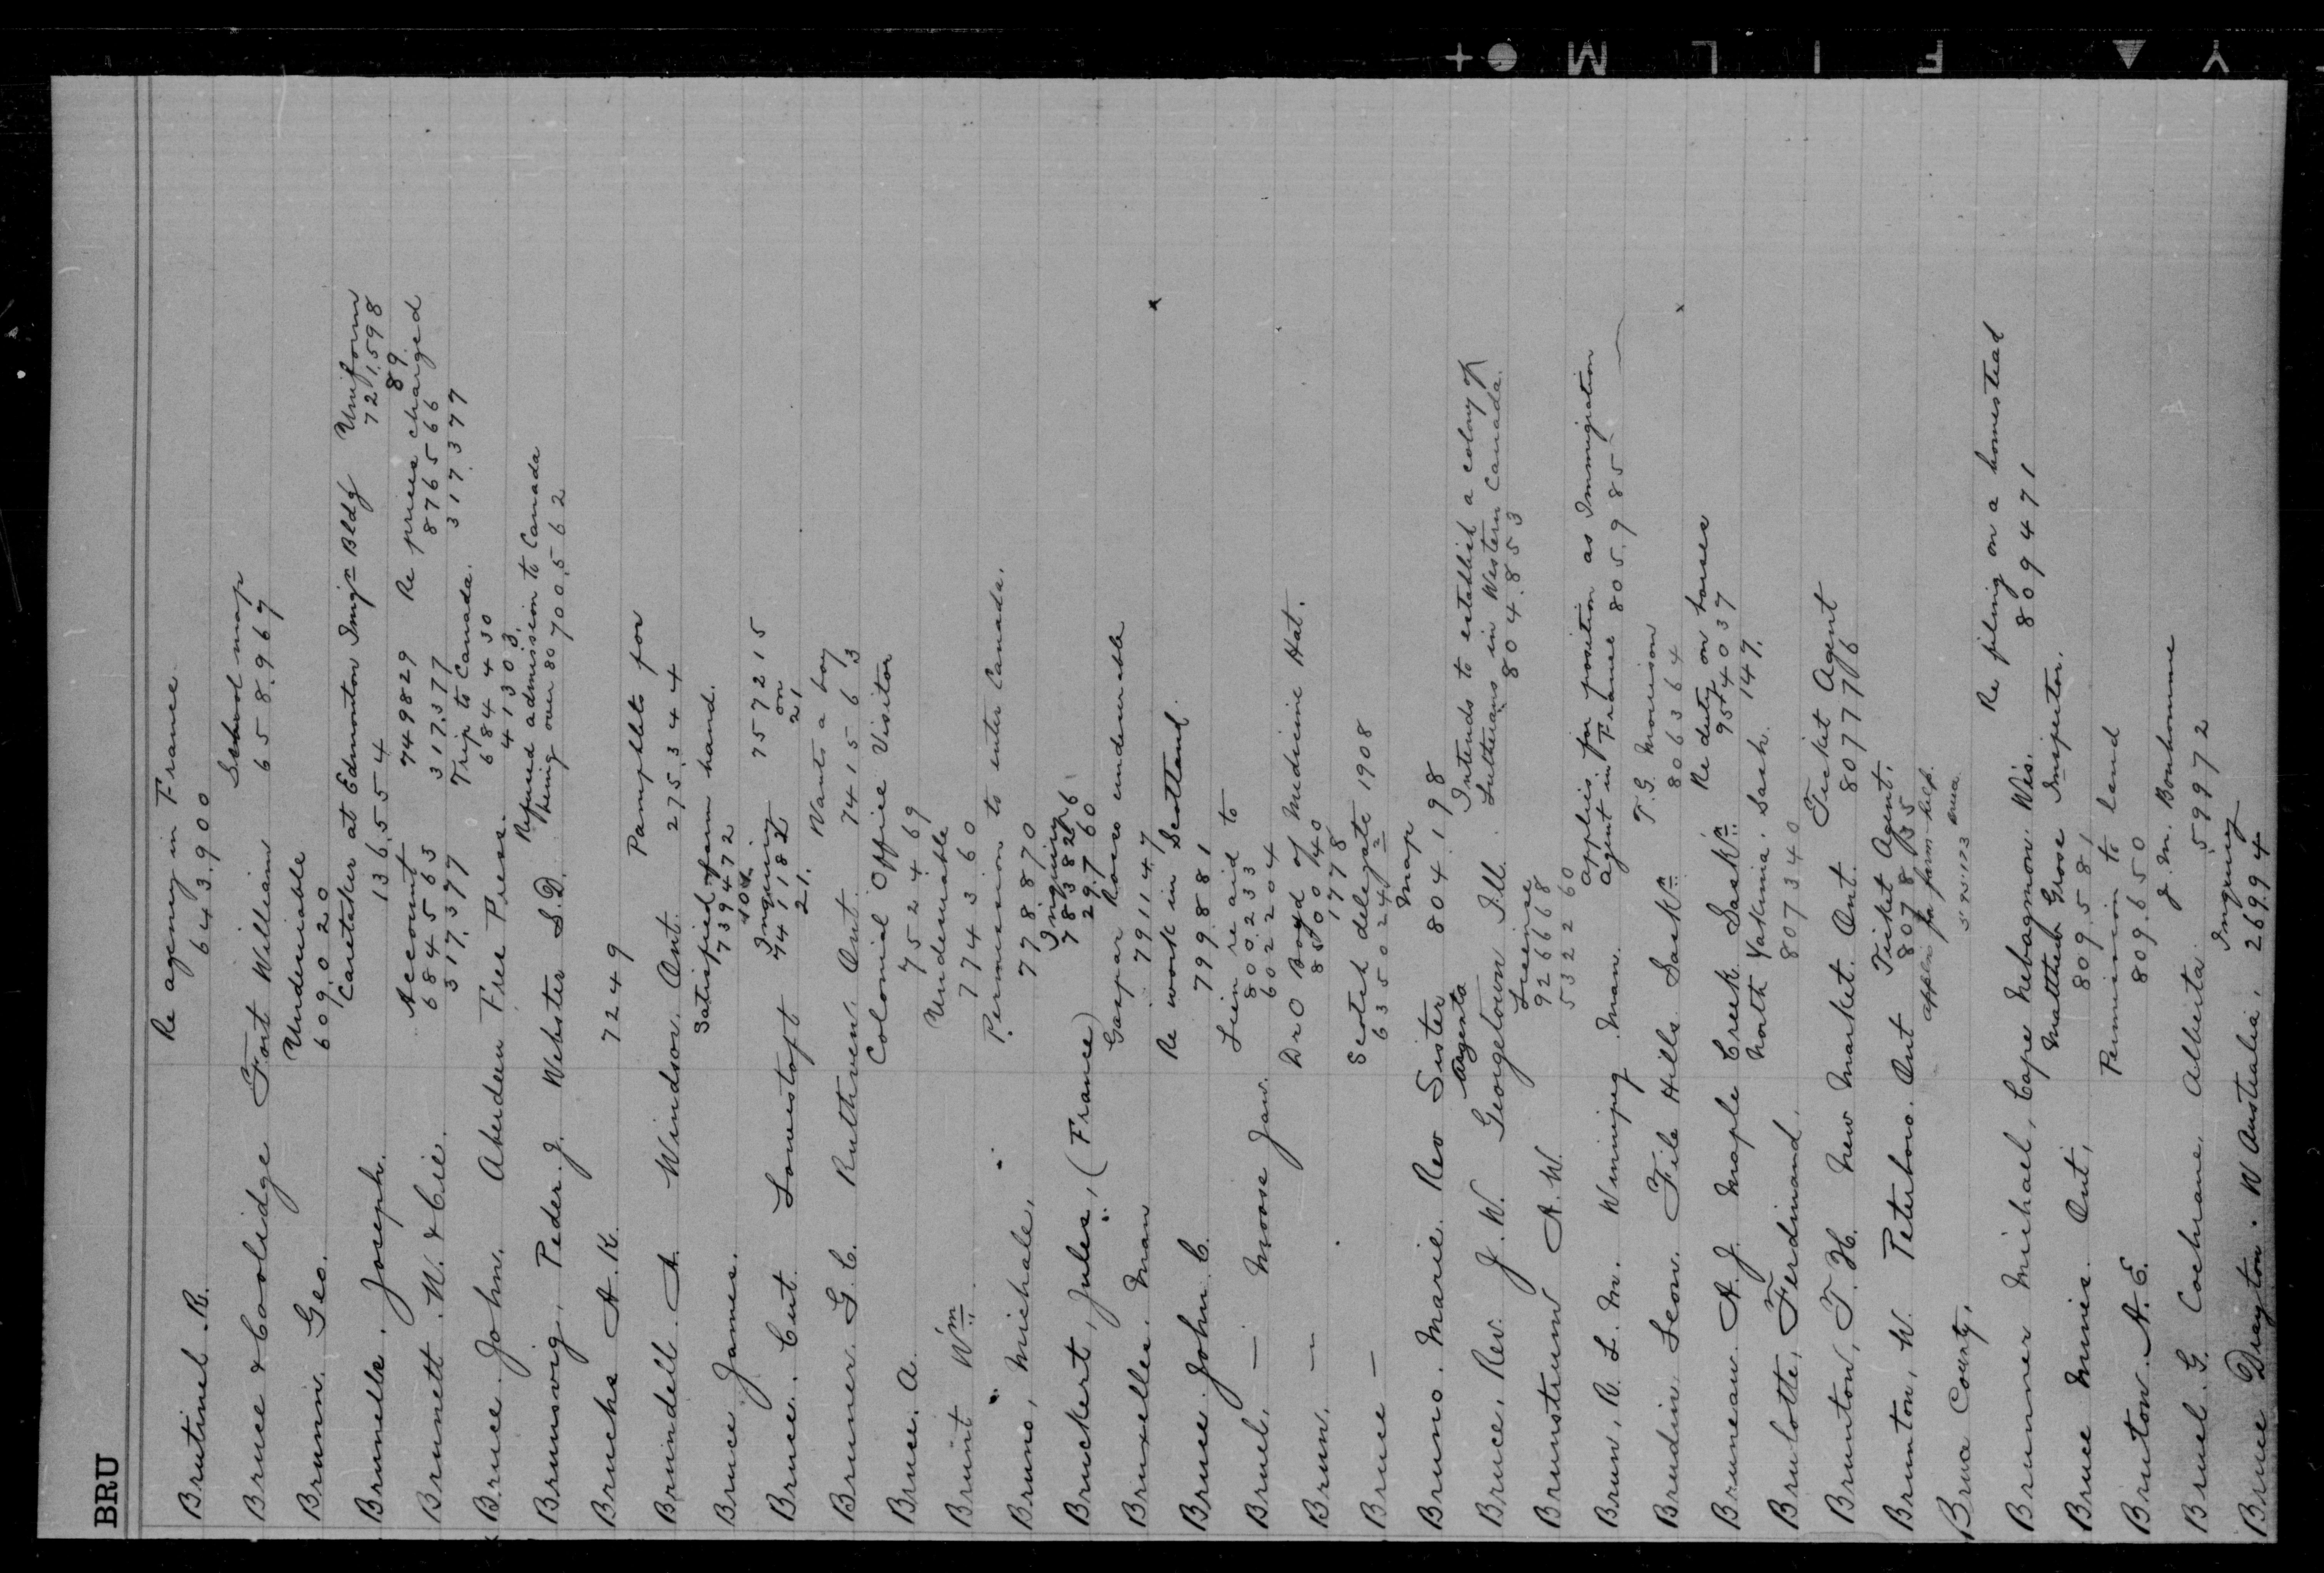 BRU
Brutinel. R. Re agency in France
643900
Bruce & Coolidge Fort William School map
658967
Brunn. Geo. Undeniable
609020
Brunelle. Joseph. Caretaker at Edmonton Imigr Bldg Uniform
136554 721598
89
Brunett. W. & Cie. Account 749829 Re prices charged
684563 317377 876566
317377 317377
Bruce. John. Aberdeen Free Press. Trip to Canada.
684430
41303
Brunsvig, Peder. J. Webster S.D. Refused admission to Canada
being over 80 700562
Bruchs A. K. 7249
Brindell. A. Windsor. Ont. Pamphlets for
275344
Bruce James. Satisfied farm hand.
739472
Bruce. Cut Lonestoft Inquiry 757215
741182 on
21. 21
Bruner. G. C. Ruthven. Ont. Wants a boy
741563
Bruce. A. Colonial Office Visitor
752469
Bruint Wm. Undesirable
774360
Bruno, Michale, Permission to enter Canada.
778870
Bruckert, Jules, (France) Inquiring
29760
Bruxelles. Man Gaspar Roses undesirable
791147
Bruce. John. C. Re work in Scotland.
799881
Bruel. — Moose Jaw. Lien re aid to
800233
602204
Brun. — Dr O Boyd of Medicine Hat.
1778
Bruce — Scotch delegate 1908
635024
Bruno. Marie. Rev Sister Map
804198
Bruce, Rev. J. W. Georgetown Ill. Agents Intends to establish a colony of
Lutherans in Western Canada.
804.853
Brunstrum A. W. License
926668
532260
Brun, R. L. M. Winnipeg Man. Applies for position as Immigration
Agent in France 805.985
Brudin Leon. File Hills Sask. T. G. Morrison
806364
Bruneau. A. J. Maple Creek Sask. Re duty on horses
954037
147.
Brulotte, Ferdinand. North Yakima. Wash.
807340
Brunton, T. H. New Market. Ont. Ticket Agent
807776
Brunton, W. Peterboro. Ont Ticket Agent.
Bruce County, Appln for farm help.
595173
Brunner Michael, Cape Nebagmon. Wis. Re filing on a homestead
809471
Bruce Mines. Ont, Matthew Grose Inspector.
809.581
Bruton. A. E. Permission to land
809.650
Bruel. G. Cochrane. Alberta. J. M. Bonhomme
59972
Bruce Drayton. W Australia, Inquiry
26994